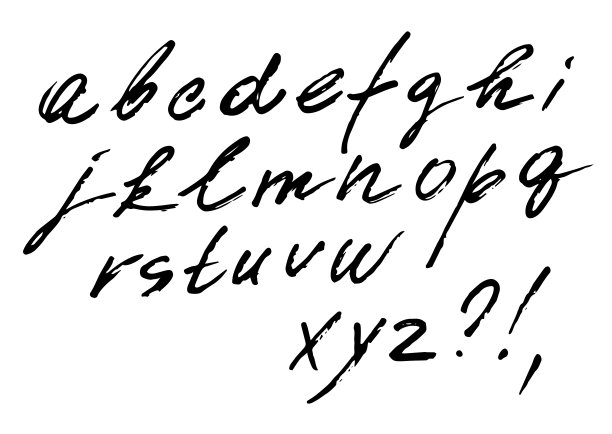 abcdefghi
jklmnopq
rstuvw
xyz?!,